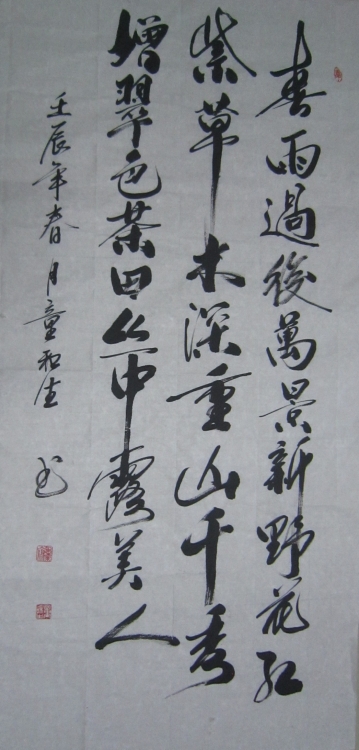 春雨過後萬景新野花紅
紫草木深重山千秀
增翠色茶田丛中露美人
壬辰年春月童和生书